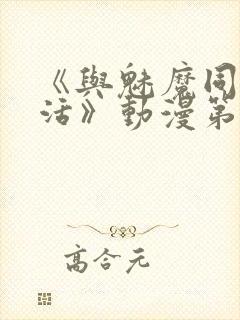 《與魅魔同
活》動漫第
高合元